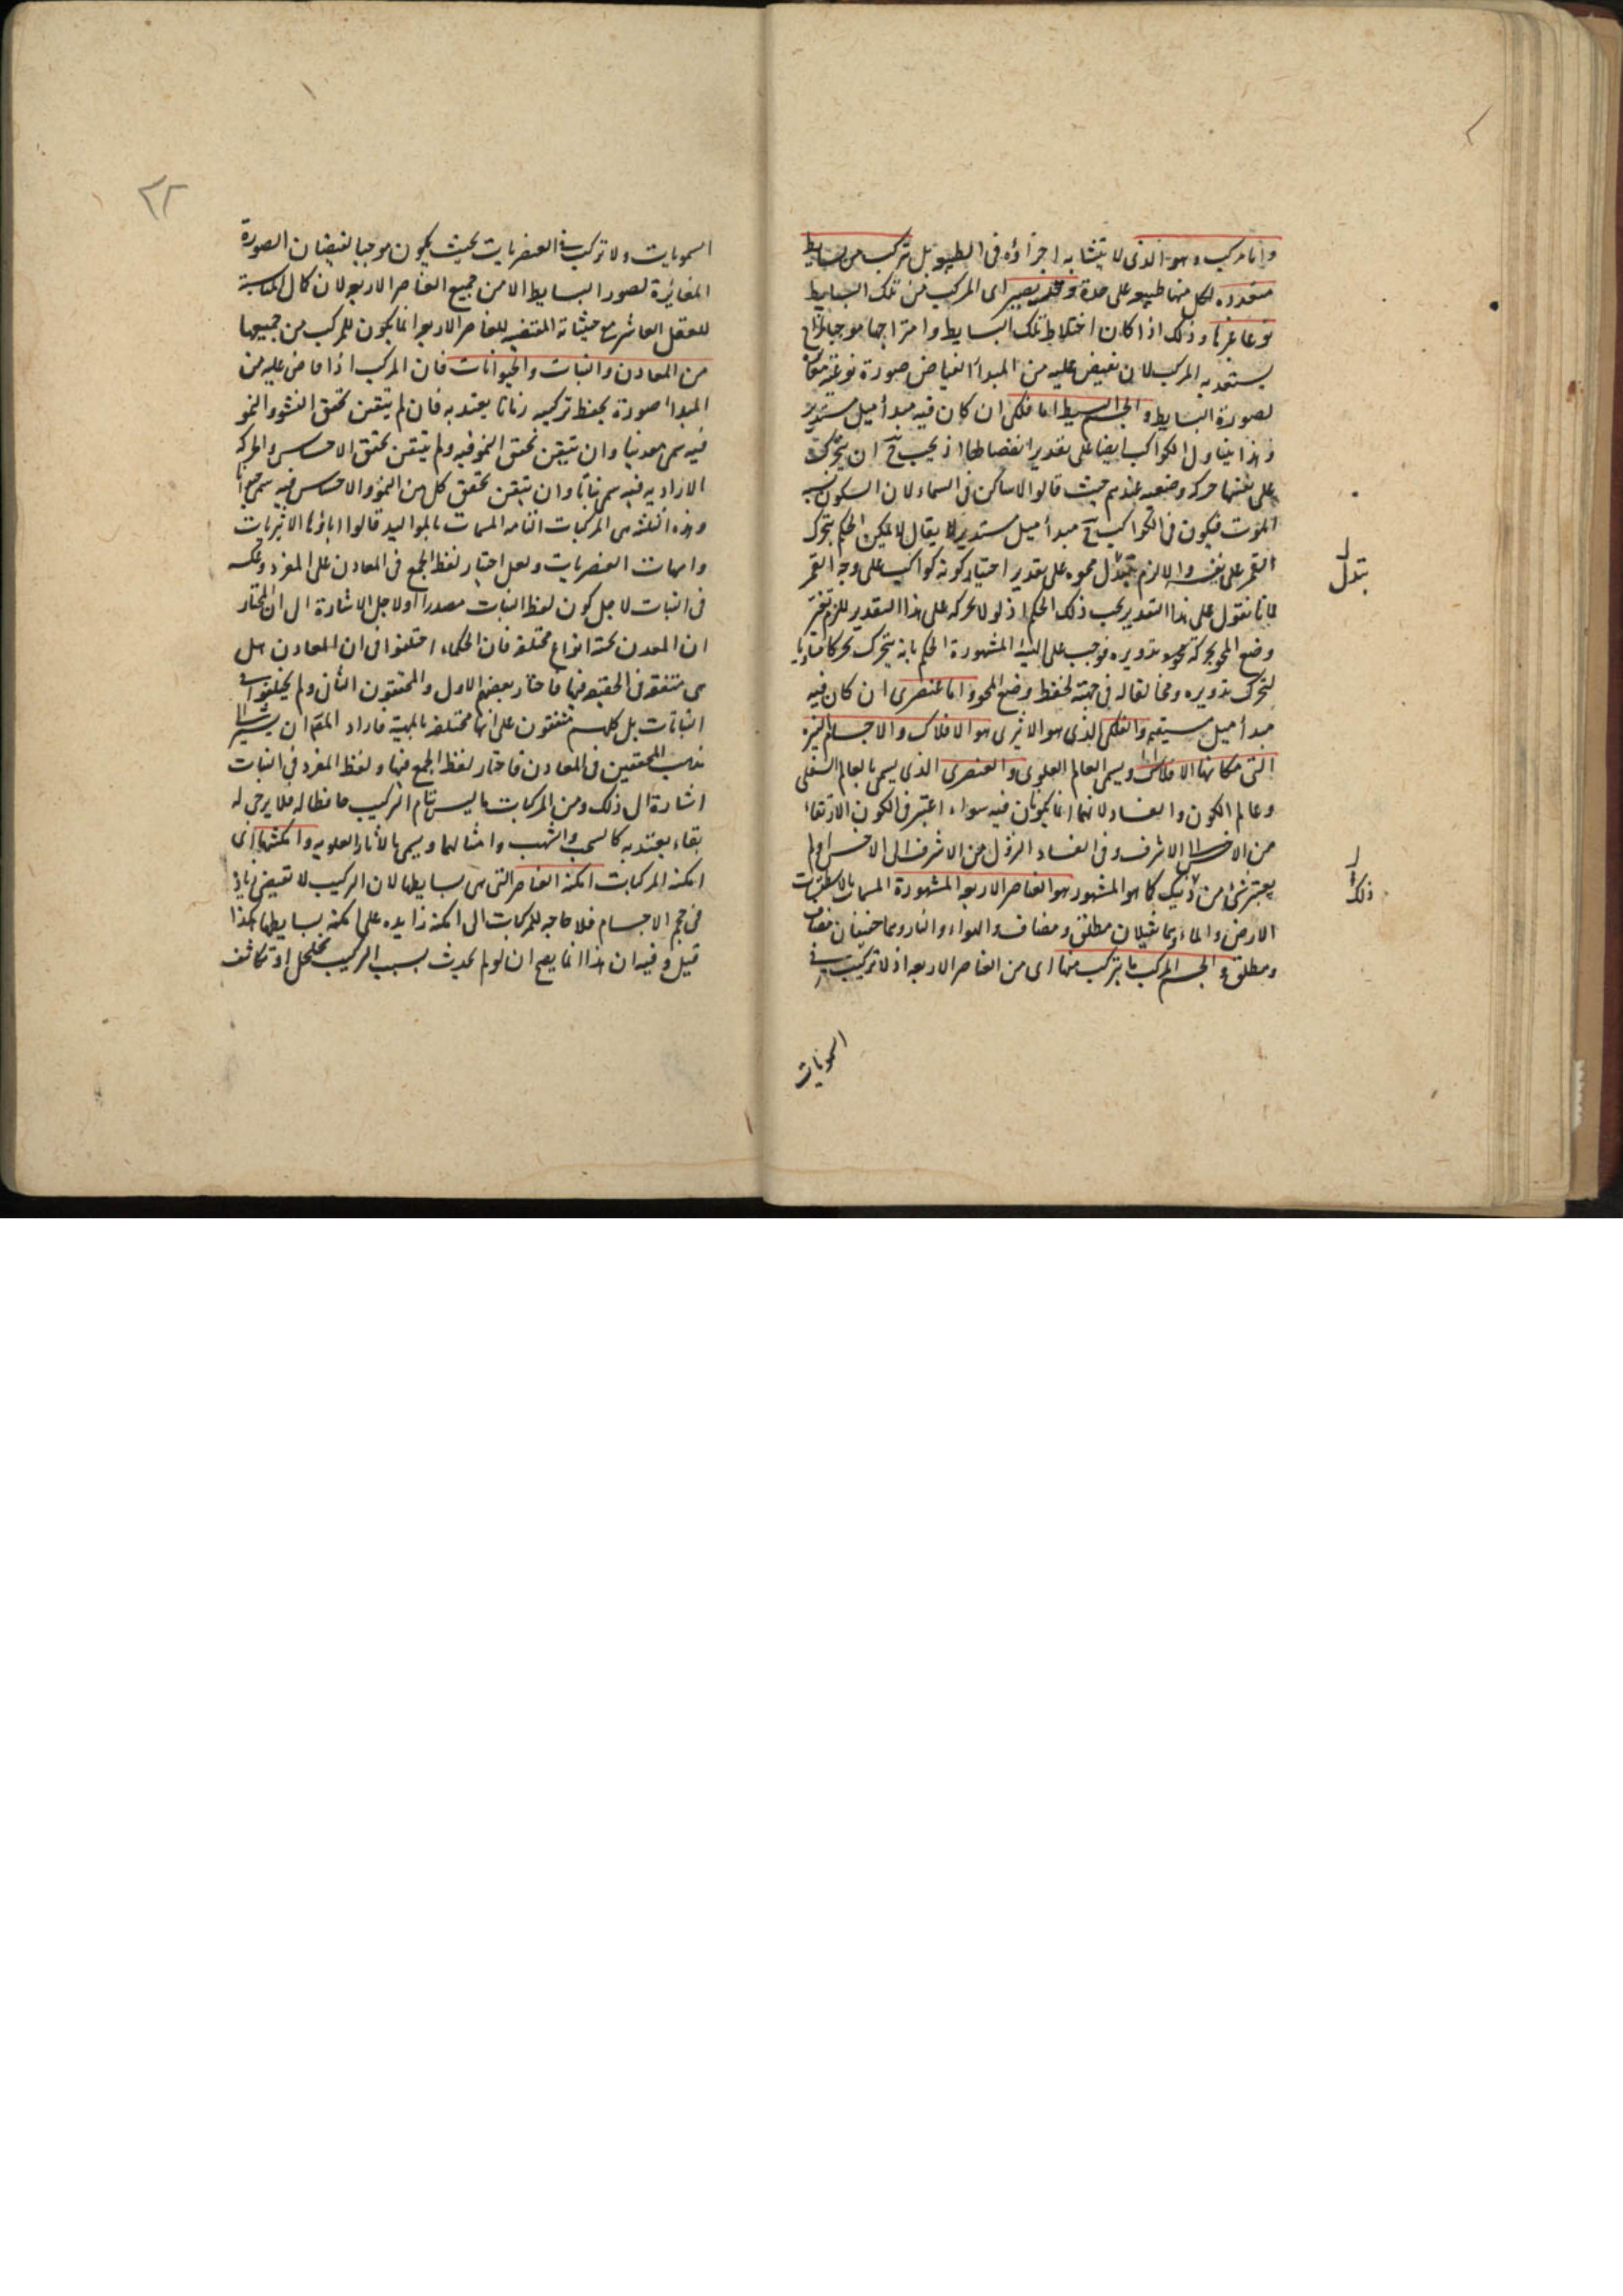 واما مركب وهو الذى لا يتشابه اجزاؤه فى الطبيعة بل تركب من بسايط
متعددة لكل منها طبيعة على حدة وقد يصير اى المركب من تلك البسايط
نوعا غيرها وذلك اذا كان اختلاط تلك البسايط وامتزاجها موجبا لمزاج
يستعد به المركب لان يفيض عليه من المبدأ الفياض صورة نوعية مغايرة
لصورة البسايط والجسم البسيط اما فلكى ان كان فيه مبدأ ميل مستدير
وهذا يتناول الكواكب ايضا على تقدير انفصالها اذ يجب ح ان يتحرك
على نفسها حركة وضعية عندهم حيث قالوا لا ساكن فى السماء لان السكون
الموت فيكون فى الكواكب ح مبدأ ميل مستدير لا يقال لا يمكن الحكم بتحرك
القمر على نفسه والا لزم تبدل محوه على تقدير اختيار كونه كواكب على وجه القمر
لانا نقول على هذا التقدير يجب ذلك الحكم اذ لو لا تحركه على هذا التقدير للزم تغير
وضع المحو بحركة تدويره فوجب على الهيئة المشهورة الحكم بانه يتحرك تحركا مساويا
لتحرك تدويره ومخالفا له فى جهته لحفظ وضع المحو واما عنصرى ان كان فيه
مبدأ ميل مستقيم والفلكى الذى هو الاثيرى هو الافلاك والاجسام النيرة
التى مكانها الافلاك ويسمى العالم العلوى والعنصرى الذى يسمى بالعالم السفلى
وعالم الكون والفساد لانهما انما يكونان فيه سواء اعتبر فى الكون الارتقاء
من الاخس الى الاشرف وفى الفساد النزول من الاشرف الى الاخس او لم
يعتبر شئ من ذلك كما هو المشهور هو العناصر الاربعة المشهورة المسمات بالاسطقسات
الارض والماء وهما ثقيلان مطلق ومضاف والهواء والنار وهما خفيفان مضاف
ومطلق والجسم المركب ما يتركب منها اى من العناصر الاربعة اذ لا تركيب فى
السمويات
تبدل
ذلك
٢٢
السمويات ولا تركيب فى العنصريات بحيث يكون موجبا لفيضان الصورة
المغايرة لصور البسايط الا من جميع العناصر الاربعة لان كمال المناسبة
للعقل العاشر مع حيثياته المقتضية للعناصر الاربعة انما يكون للمركب من جميعها
من المعادن والنبات والحيوانات فان المركب اذا فاض عليه من
المبدأ صورة يحفظ تركيبه زمانا يعتد به فان لم يتيقن تحقق النشو والنمو
فيه سمى معدنيا وان تيقن تحقق النمو فيه ولم يتيقن تحقق الاحساس والحركة
الارادية فيه سمى نباتا وان تيقن تحقق كل من النمو والاحساس فيه سمى حيوانا
وهذه الثلثة هى المركبات التامة المسمات بالمواليد قالوا اباؤها الاثيريات
وامهات العنصريات ولعل اختيار لفظ الجمع فى المعادن على المفرد وعكسه
فى النبات لاجل كون لفظ النبات مصدرا او لاجل الاشارة الى ان المختار
ان المعدن تحته انواع مختلفة فان الحكماء اختلفوا فى ان المعادن هل
هى متفقة فى الحقيقة فيها فاختار بعضهم الاول والمحققون الثانى ولم يختلفوا فى
النباتات بل كلهم متفقون على انها مختلفة بالماهية فاراد المص ان يشير الى
مذهب المحققين فى المعادن فاختار لفظ الجمع فيها ولفظ المفرد فى النبات
اشارة الى ذلك ومن المركبات ما ليس تام التركيب حافظا له فلا يرجى له
بقاء يعتد به كالسحب والشهب وامثالهما ويسمى بالاثار العلوية وامكنتها اى
امكنة المركبات امكنة العناصر التى هى بسايطها لان التركيب لا تقيضى زيادة
فى حجم الاجسام فلا حاجة للمركبات الى امكنة زايدة على امكنة بسايطها هكذا
قيل وفيه ان هذا انما يصح ان لو لم يحدث بسبب التركيب تخلخل او تكاثف